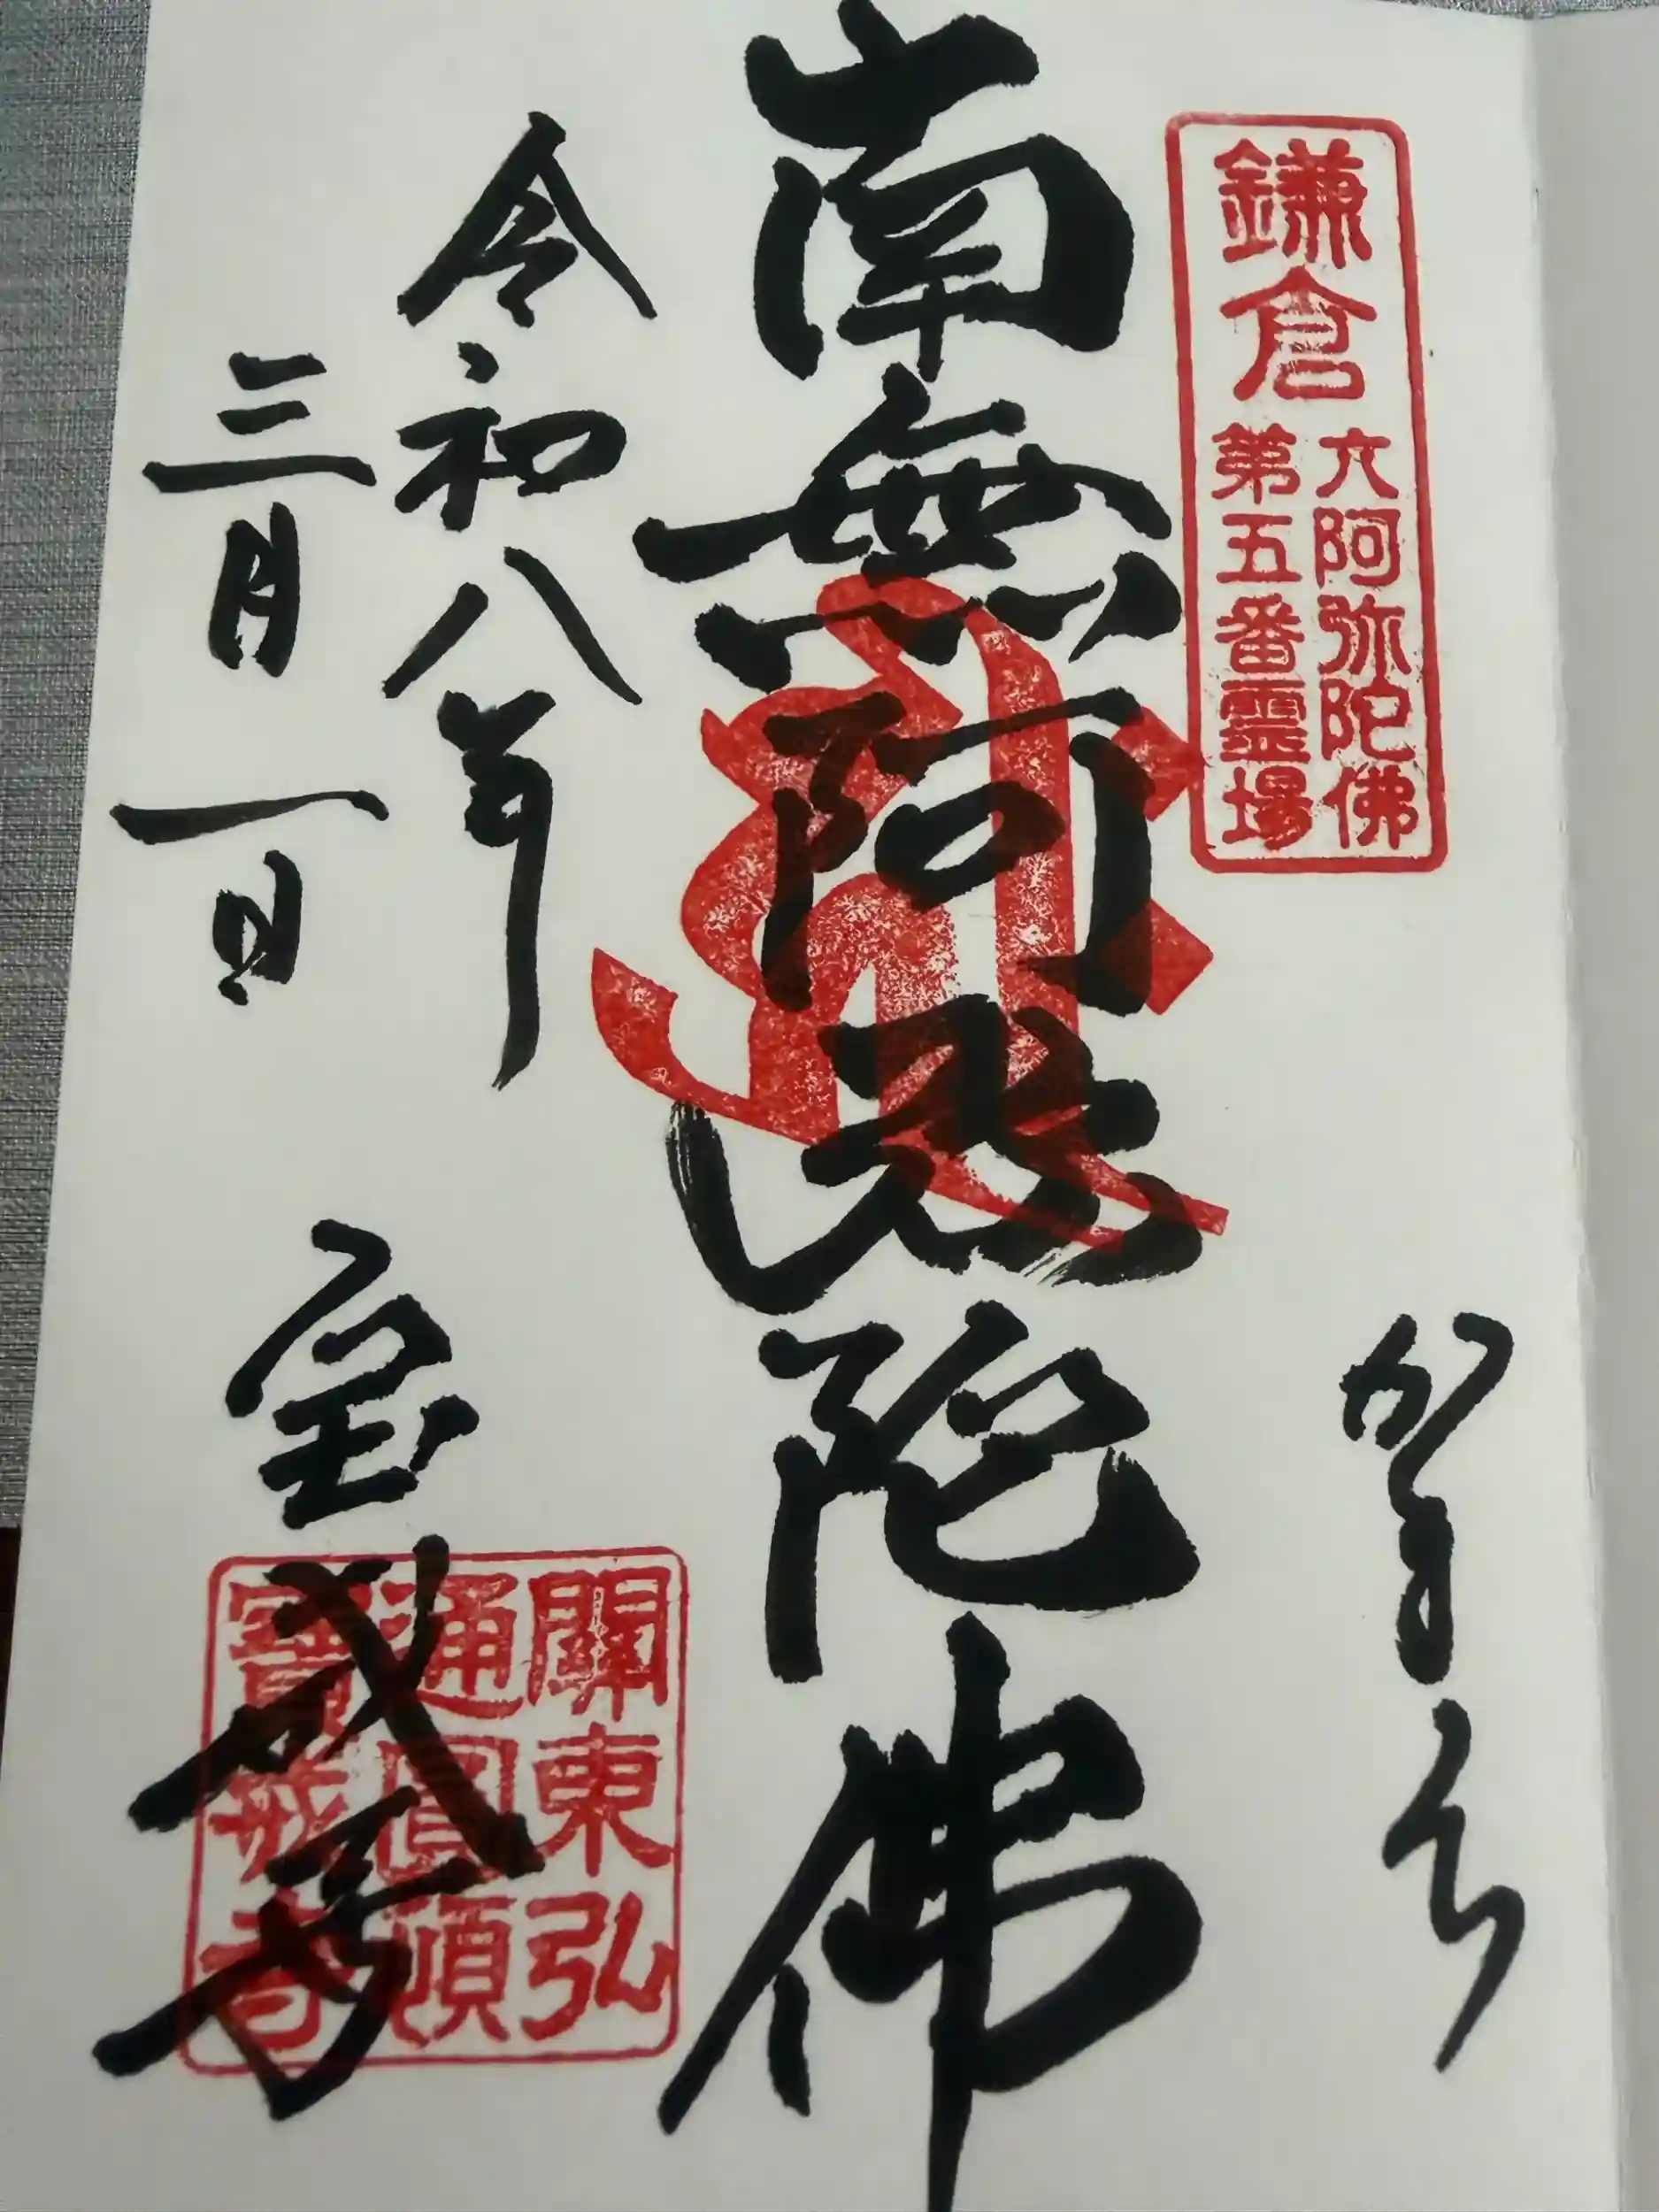 鎌倉
六阿弥陀佛
第五番霊場
かまくら
南無阿弥陀佛
令和八年
三月一日
宝戒寺
關東弘
通圓頓
寶戒寺